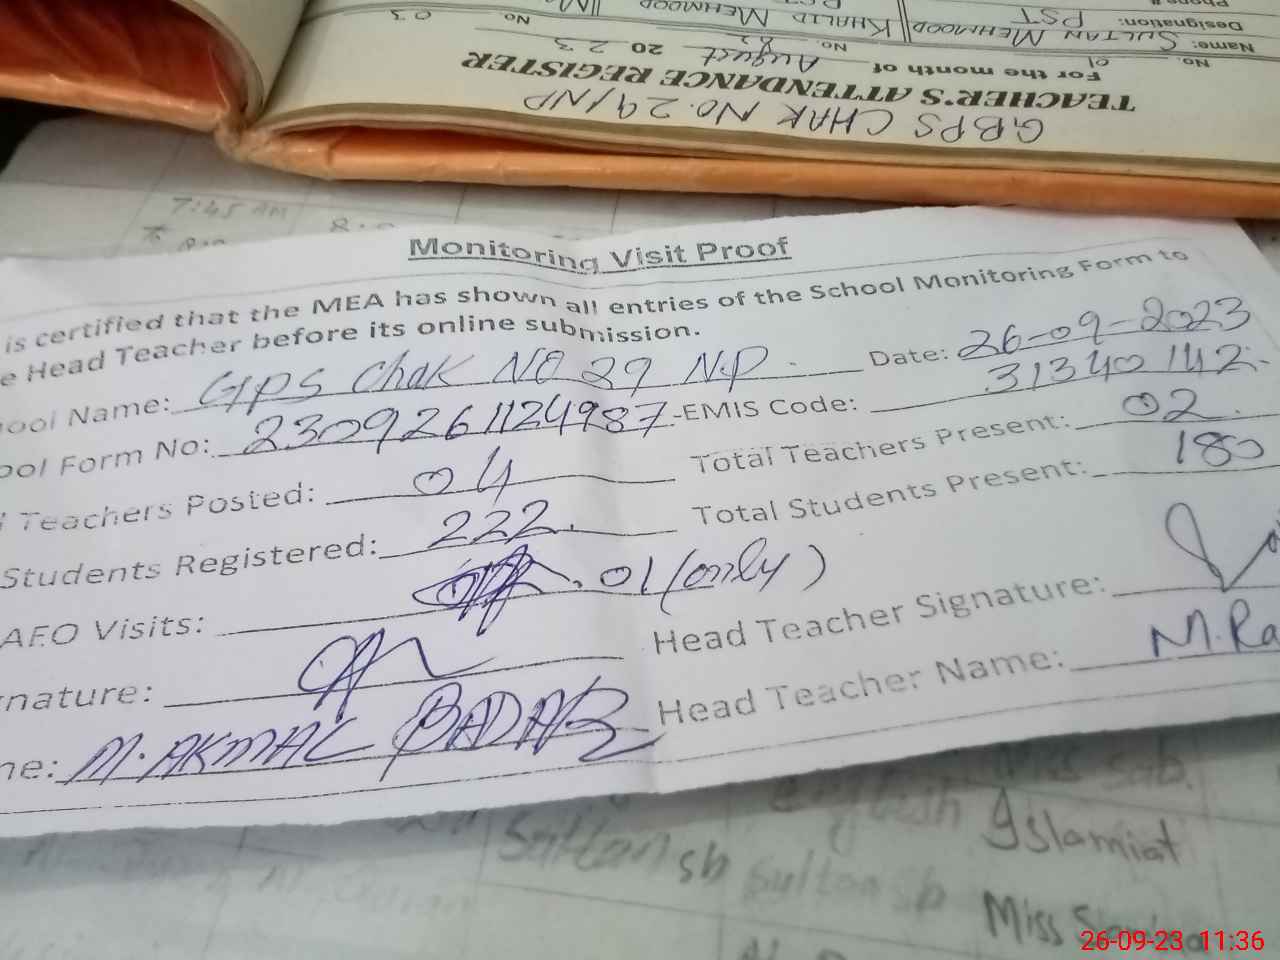 GBPS CHAK NO. 29/NP
TEACHER'S ATTENDANCE REGISTER
For the month of August 2023
No. 01 No. 02 No. 03
Name: SULTAN MEHMOOD KHALID MEHMOOD
Designation: PST
7:45 AM
Monitoring Visit Proof
is certified that the MEA has shown all entries of the School Monitoring Form to
e Head Teacher before its online submission.
ool Name: GPS Chak NO 29 NP. Date: 26-09-2023
ool Form No: 2309261124987 - EMIS Code: 31340142.
Teachers Posted: 04 Total Teachers Present: 02.
Students Registered: 222. Total Students Present: 180
AEO Visits: 01 (only)
nature: Head Teacher Signature:
ne: M. AKMAL BADAR Head Teacher Name: M. Ra
Miss Sab.
english Islamiat
Sultan sb Sultan sb
Miss
26-09-23 11:36